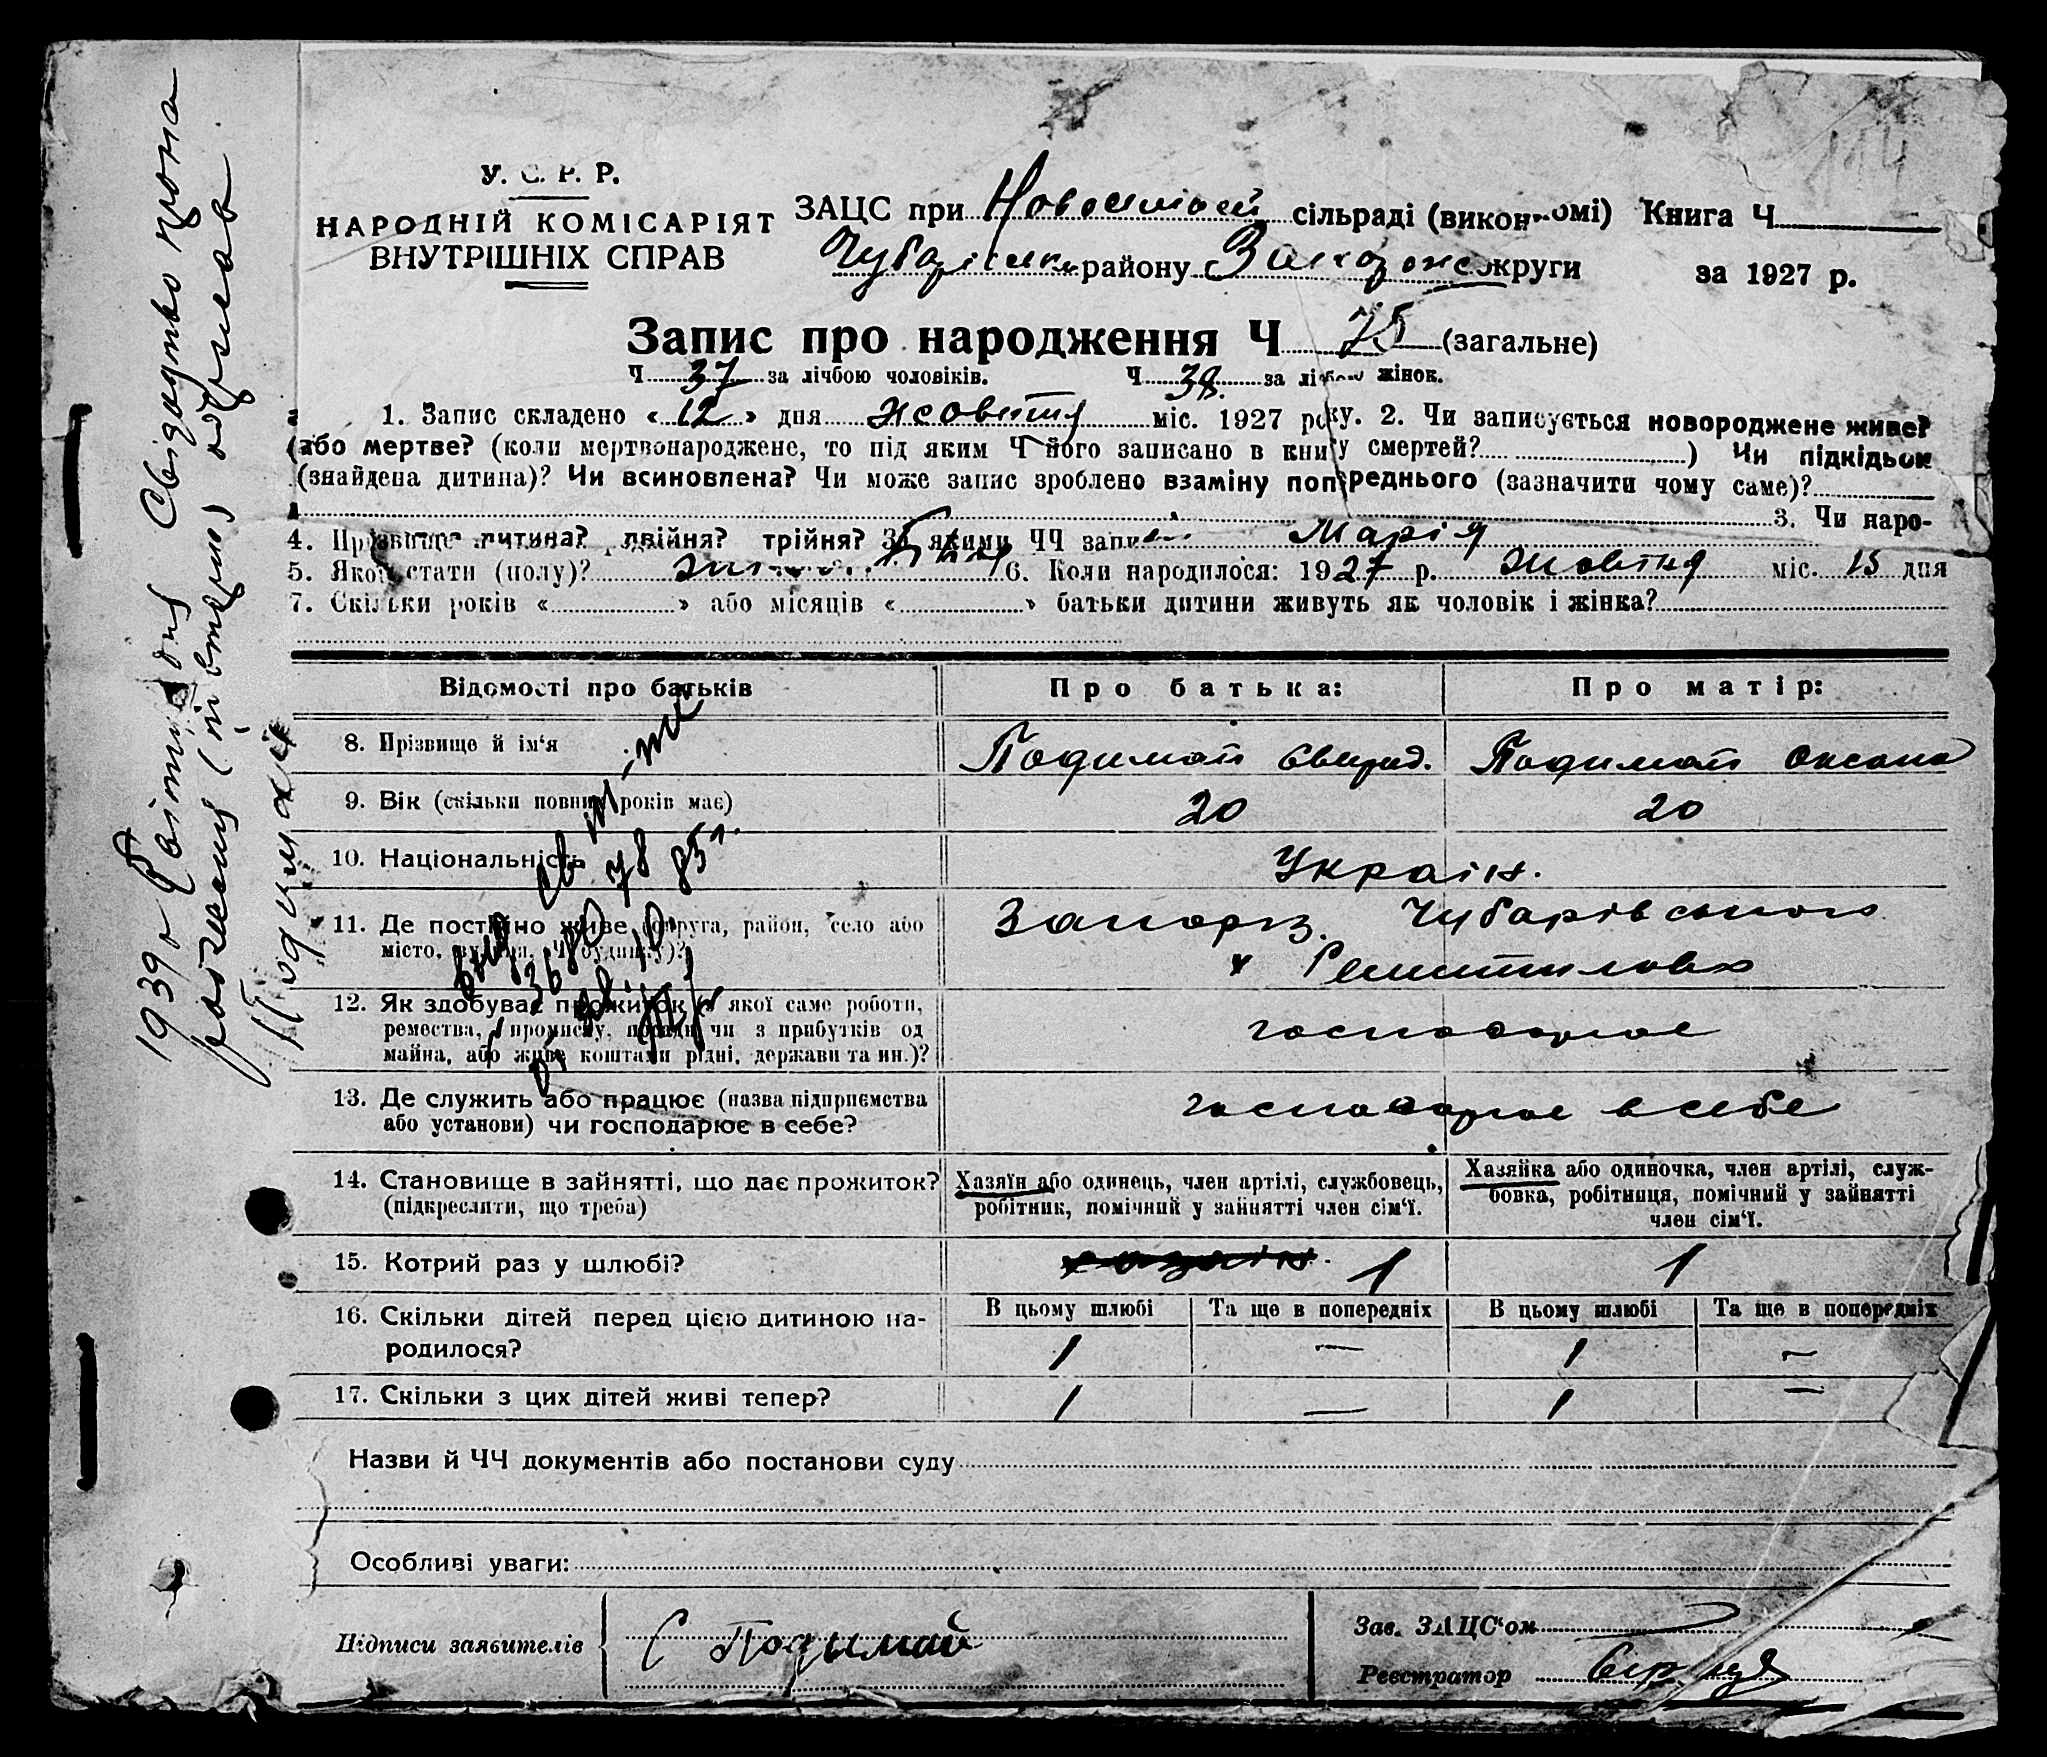 У. С. Р. Р.
НАРОДНІЙ КОМІСАРІЯТ
ВНУТРІШНІХ СПРАВ
ЗАЦС при сільраді (викон омі) Книга Ч
Чубарівськ району Запоріж округи за 1927 р.
Запис про народження Ч 75 (загальне)
Ч 37 за лічбою чоловіків. Ч 38 за лічбою жінок.
1. Запис складено «12» дня жовтня міс. 1927 року. 2. Чи записується новороджене живе?
(або мертве? (коли мертвонароджене, то під яким Ч його записано в книгу смертей? ) Чи підкідьок
(знайдена дитина)? Чи всиновлена? Чи може запис зроблено взаміну попереднього (зазначити чому саме)?
3. Чи наро-
4. Прізвище дитина? двійня? трійня? За якими ЧЧ запи Марія
5. Якої стати (полу)? 6. Коли народилося: 1927 р. жовтня міс. 15 дня
7. Скільки років « » або місяців « » батьки дитини живуть як чоловік і жінка?
Відомості про батьків Про батька: Про матір:
8. Прізвище й ім'я Подимай Свирид. Подимай Оксана
9. Вік (скільки повних років має) 20 20
10. Національність Україн.
11. Де постійно живе (округа, район, село або Запоріз. Чубарівського
місто, вулиця, Ч будинку)?
12. Як здобуває прожиток (з якої саме роботи, господарює
ремества, промислу, посади чи з прибутків од
майна, або живе коштами рідні, держави та ин.)?
13. Де служить або працює (назва підприємства господарює в себе
або установи) чи господарює в себе?
14. Становище в зайнятті, що дає прожиток? Хазяїн або одинець, член артілі, службовець, Хазяйка або одиночка, член артілі, служ-
(підкреслити, що треба) робітник, помічний у зайнятті член сім'ї. бовка, робітниця, помічний у зайнятті
член сім'ї.
15. Котрий раз у шлюбі? хазяїн. 1 1
16. Скільки дітей перед цією дитиною на- В цьому шлюбі Та ще в попередніх В цьому шлюбі Та ще в попередніх
родилося? 1 — 1 —
17. Скільки з цих дітей живі тепер? 1 — 1 —
Назви й ЧЧ документів або постанови суду
Особливі уваги:
Підписи заявителів С Подимай
Зав. ЗАЦС'ом
Реєстратор
1939 р Свідоцтво прона
рожденну (повторно) одрижав
Подимай